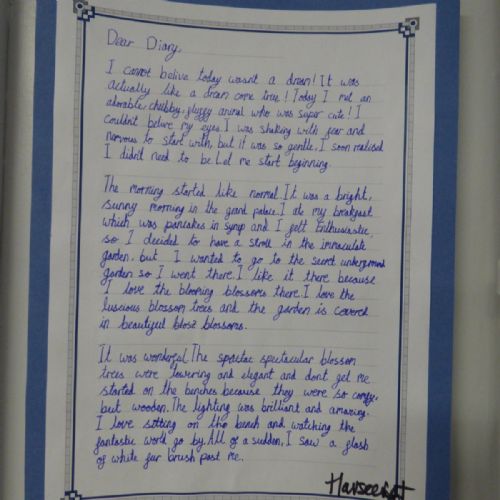 Dear Diary,
I cannot belive today wasnt a dream! It was
actually like a dream come true! Today I met an
adorable, chubby, fluffy animal who was super cute! I
couldn't belive my eyes. I was shaking with fear and
nervous to start with, but it was so gentle, I soon realised
I didn't need to be. Let me start beginning.
The morning started like normal. It was a bright,
sunny morning in the grand palace. I ate my breakfast
which was pancakes in syrup and I felt Enthusiastic,
so I decided to have a stroll in the immaculate
garden, but I wanted to go to the secret underground
garden so I went there. I like it there because
I love the blooming blossoms there. I love the
luscious blossom trees and the garden is covered
in beautiful blosz blossoms.
It was wonderful. The spactac spectacular blossom
trees were towering and elegant and dont get me
started on the benches because they were so comfy,
but wooden. The lighting was brilliant and amazing.
I love sitting on the bench and watching the
fantastic world go by. All of a sudden, I saw a flash
of white fur brush past me.